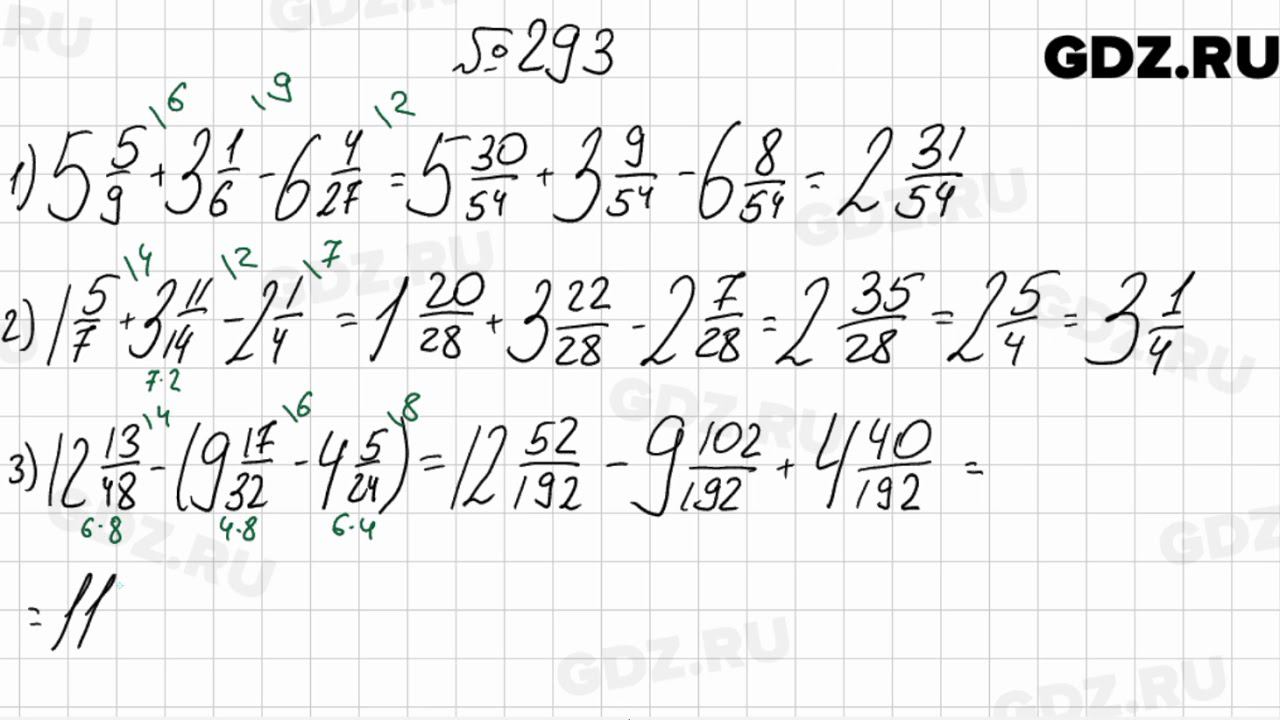 №293
GDZ.RU
\6 \9 \2
1) 5 5/9 + 3 1/6 - 6 4/27 = 5 30/54 + 3 9/54 - 6 8/54 = 2 31/54
\4 \2 \7
2) 1 5/7 + 3 11/14 - 2 1/4 = 1 20/28 + 3 22/28 - 2 7/28 = 2 35/28 = 2 5/4 = 3 1/4
7·2
\4 \6 \8
3) 12 13/48 - (9 17/32 - 4 5/24) = 12 52/192 - 9 102/192 + 4 40/192 =
6·8 4·8 6·4
= 11